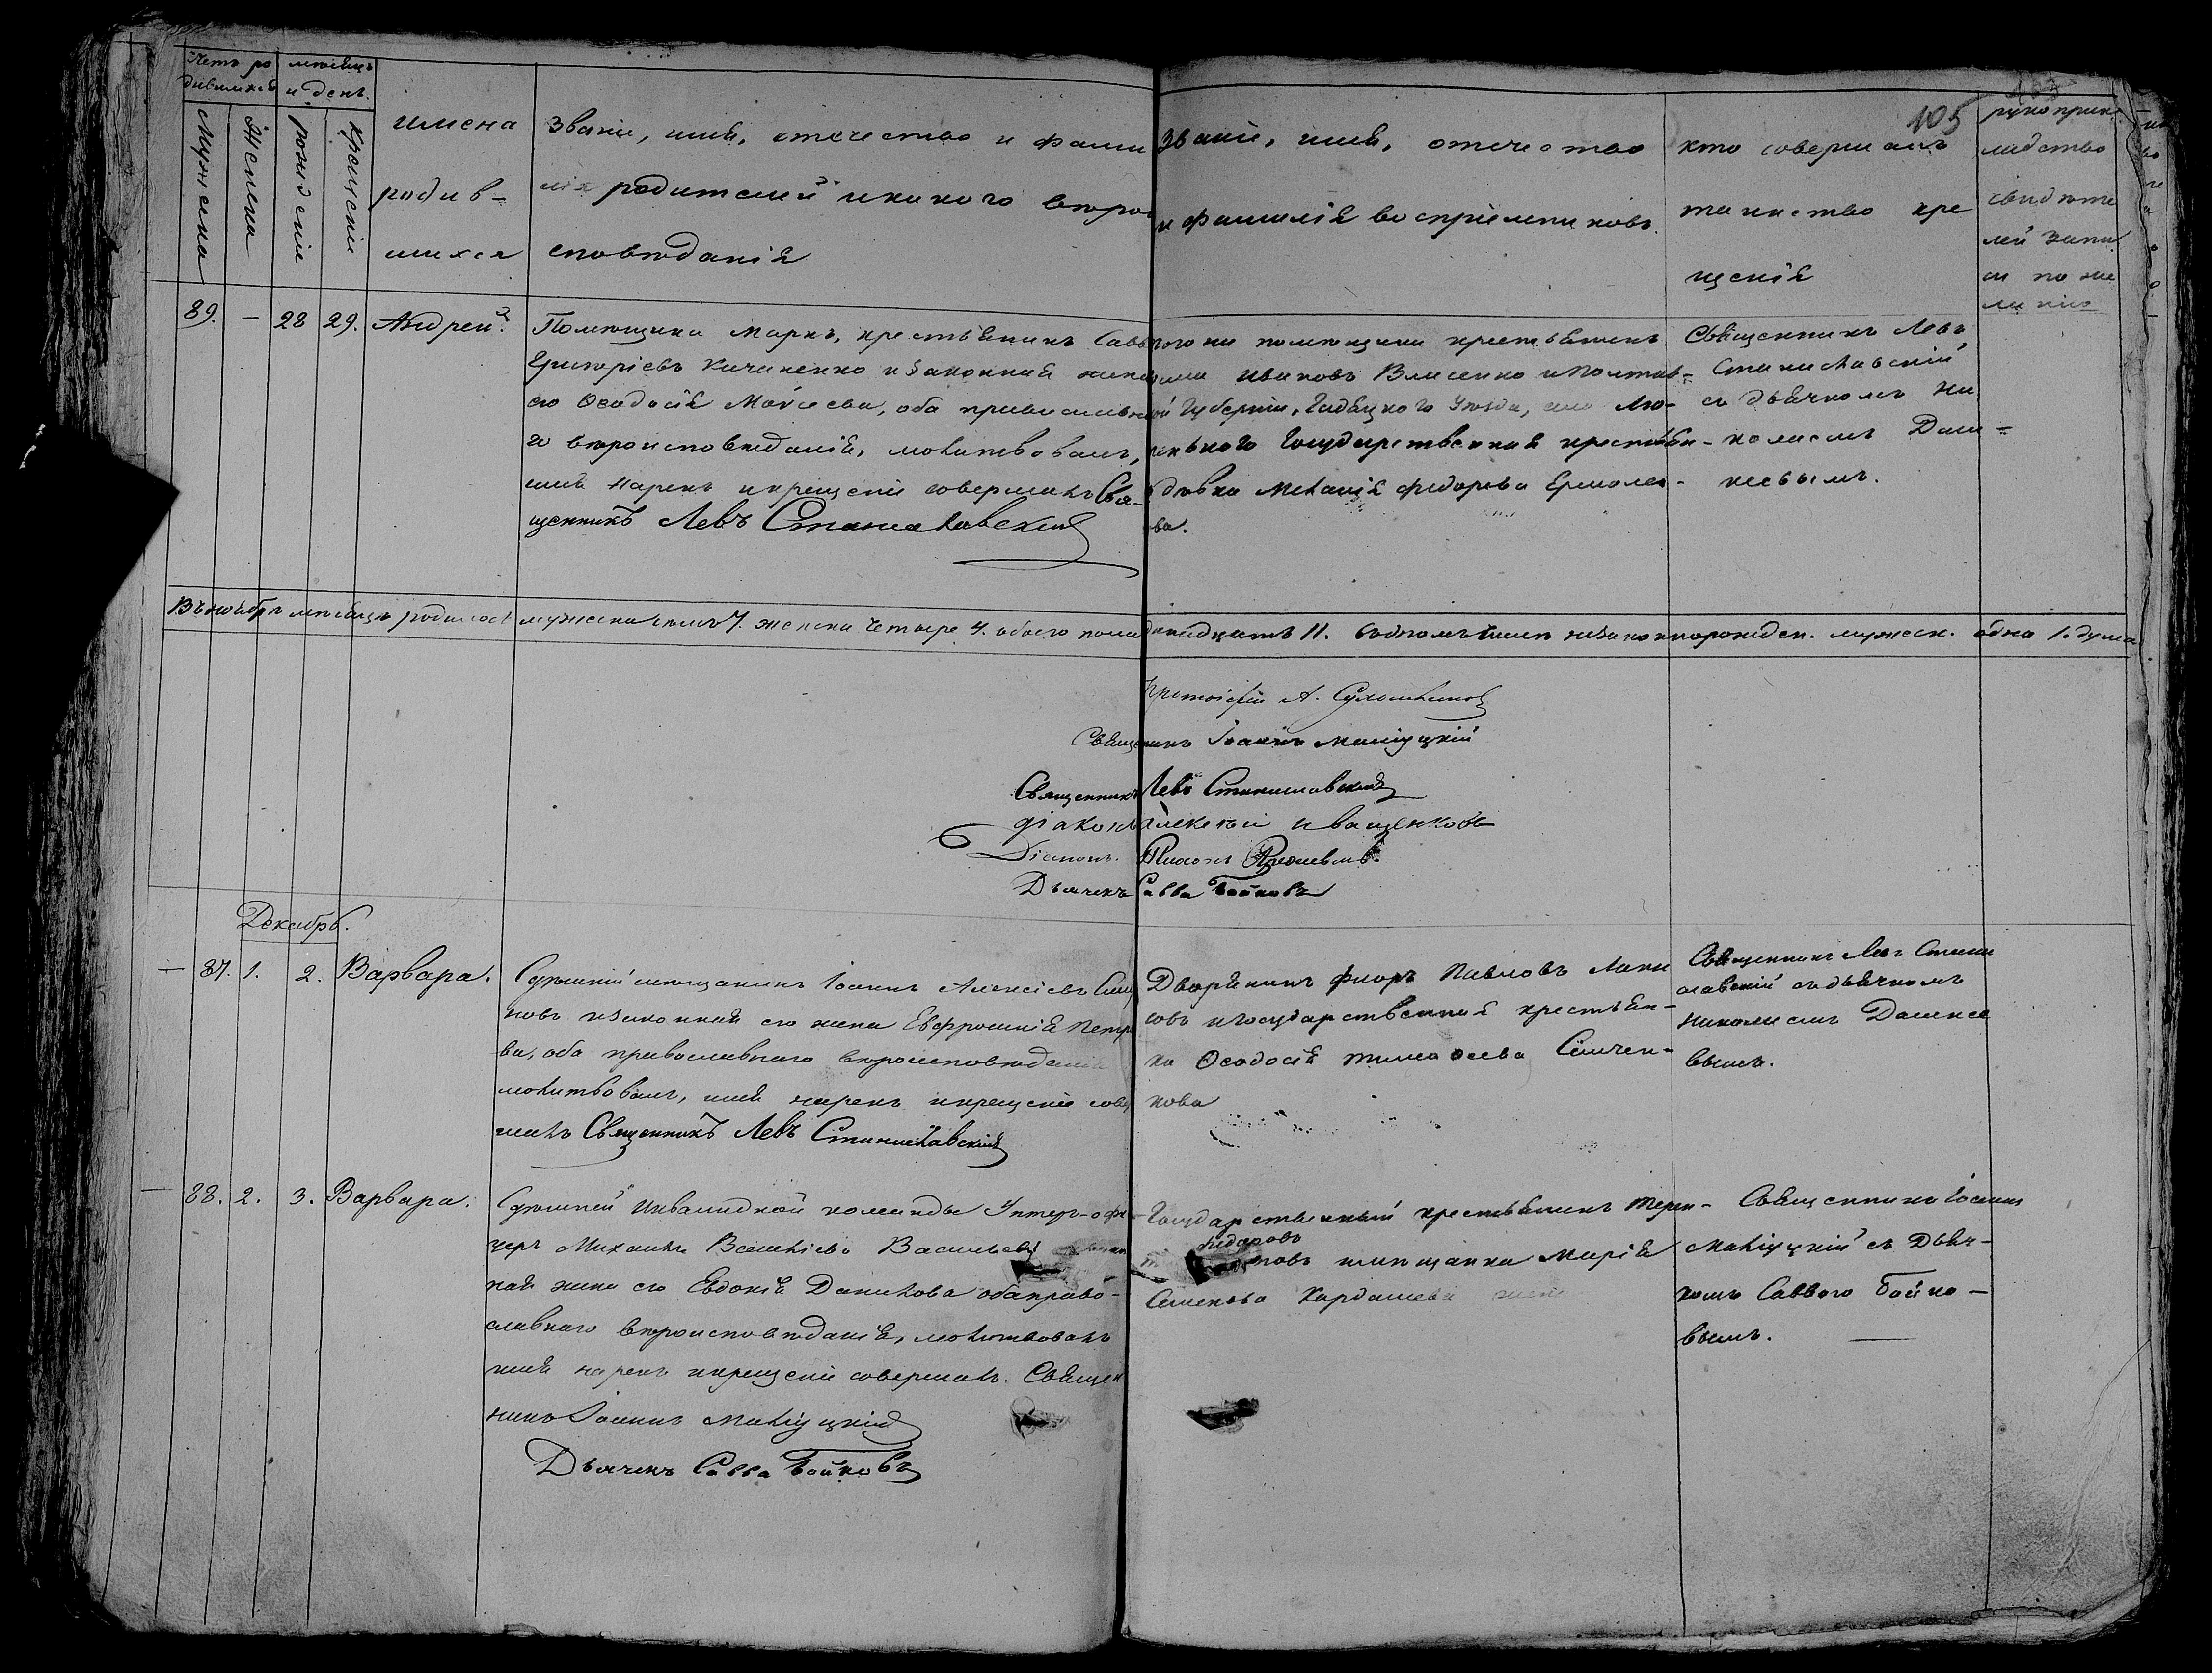 105
Счетъ ро
дившихся
мѣсяцъ
и день.
Мужеска
Женска
рожденіе
крещеніе
имена
родив-
шихся
Званіе, имя, отечество и фами
лія родителей и какого вѣро-
исповѣданія
Званіе, имя, отечество
и фамилія воспріемниковъ.
кто совершалъ
таинство кре
щенія
рукоприк
ладство
свидѣте
лей запи
си по же
ланію
89. — 28 29. Андрей.
Помѣщика Маркъ, крестьянинъ Савва
Григорьевъ Кичиненко и законная жена
его Ѳеодосія Моисеева, оба православна
го вѣроисповѣданія, молитвовалъ,
имя нарекъ и крещеніе совершалъ Свя-
щенникъ Левъ Станиславскій
помѣщика крестьянинъ
Ивановъ Власенко и Полтав-
ой Губерніи, Гадяцкого Уѣзда, села Лю-
теньного Государственная крестьян-
дѣвка Меланія Федорова Ермолен-
кова.
Священникъ Левъ
Станиславскій
съ дьячкомъ Ни
колаемъ Даш-
кеевымъ.
Въ ноябрѣ мѣсяцѣ родилось мужеска семь 7. женска четыре 4. обоего пола одинадцать 11. Въ томъ числѣ незаконнорожден. мужеск. одна 1. душа
Протоіерей А.
Священникъ Іоаннъ Маніуцкій
Священникъ Левъ Станиславскій
Діаконъ Алексѣй Иващенковъ
Діаконъ.
Дьячекъ Савва Бойковъ
Декабрь.
— 87. 1. 2. Варвара.
Сумскій мѣщанинъ Іоаннъ Алексѣевъ
новъ и законная его жена Евфросинія Петро
ва, оба православнаго вѣроисповѣданія
молитвовалъ, имя нарекъ и крещеніе совер
шалъ Священникъ Левъ Станиславскій
Дворянинъ Флоръ Павловъ
совъ и Государственная крестьян-
ка Ѳеодосія Тимоѳеева Симчен-
кова
Священникъ Левъ Стани
славскій съ дьячкомъ
Николаемъ Дашкее
вымъ.
— 88. 2. 3. Варвара.
Сумской Инвалидной команды Унтеръ-офи
церъ Михаилъ Васильевъ
ная жена его Евдокія Данилова оба право-
славнаго вѣроисповѣданія, молитвовалъ
имя нарекъ и крещеніе совершалъ. Священ
никъ Іоаннъ Маніуцкій
Дьячекъ Савва Бойковъ
Государственный крестьянинъ
Федоровъ
новъ и мѣщанка Марія
Семенова Кардашева
Священникъ Іоаннъ
Маніуцкій съ Дьяч-
комъ Саввою Бойко-
вымъ.